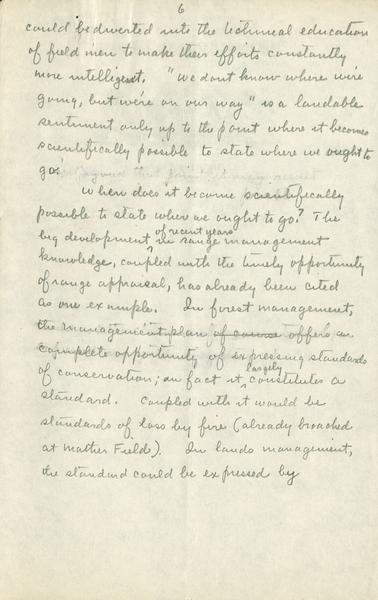 6
could be diverted into the technical education
of field men to make their efforts constantly
more intelligent. "We dont know where we're
going, but we're on our way" is a laudable
sentiment only up to the point where it becomes
scientifically possible to state where we ought to
go.
When does it become scientifically
possible to state where we ought to go? The
big development of recent years in range management
knowledge, coupled with the timely opportunity
of range appraisal, has already been cited
as one example. In forest management,
the management plan of course offers a
complete opportunity of expressing standards
of conservation; in fact it largely constitutes a
standard. Coupled with it would be
standards of loss by fire (already broached
at Mather Field). In lands management,
the standard could be expressed by